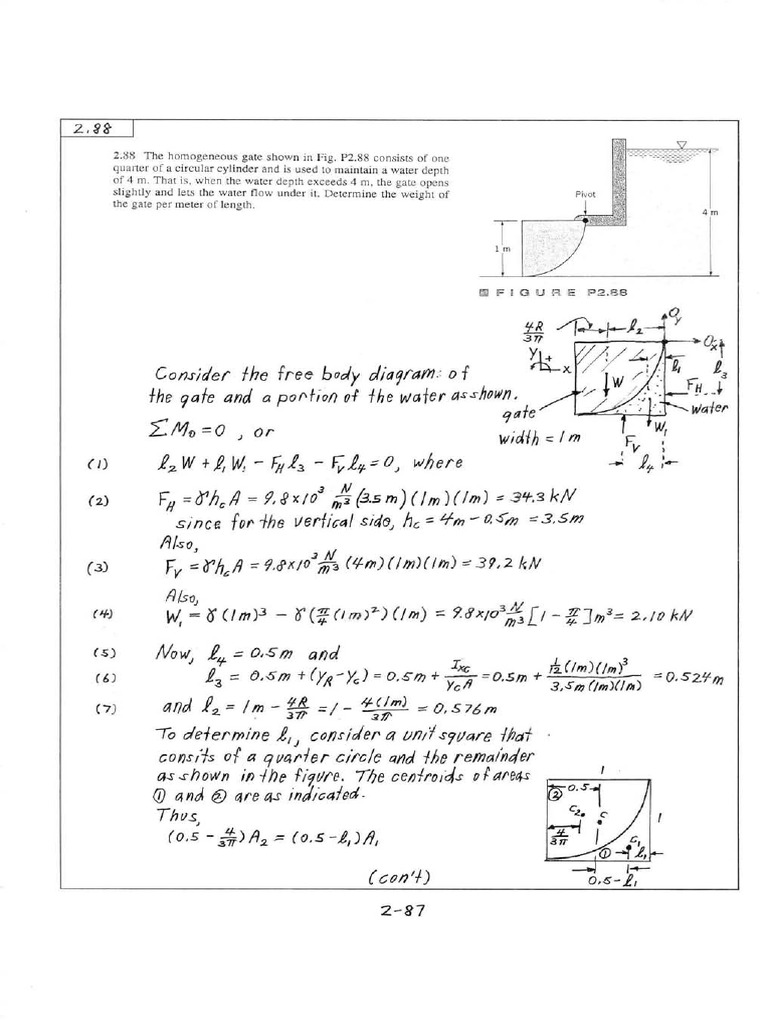 2.88
2.88 The homogeneous gate shown in Fig. P2.88 consists of one
quarter of a circular cylinder and is used to maintain a water depth
of 4 m. That is, when the water depth exceeds 4 m, the gate opens
slightly and lets the water flow under it. Determine the weight of
the gate per meter of length.
Pivot
4 m
1 m
FIGURE P2.88
4R/3π
l₂
O_y
O_x
y
+
x
l₁
l₃
W
F_H
gate
water
W₁
width = 1m
F_V
l₄
Consider the free body diagram of
the gate and a portion of the water as shown.
ΣM₀ = 0 , or
(1) l₂W + l₁W₁ - F_H l₃ - F_V l₄ = 0, where
(2) F_H = γh_cA = 9.8×10³ N/m³ (3.5m)(1m)(1m) = 34.3 kN
since for the vertical side, h_c = 4m - 0.5m = 3.5m
Also,
(3) F_V = γh_cA = 9.8×10³ N/m³ (4m)(1m)(1m) = 39.2 kN
Also,
(4) W₁ = γ(1m)³ - γ(π/4 (1m)²)(1m) = 9.8×10³ N/m³ [1 - π/4] m³ = 2.10 kN
(5) Now, l₄ = 0.5m and
(6) l₃ = 0.5m + (y_R - y_c) = 0.5m + I_xc/y_cA = 0.5m + 1/12 (1m)(1m)³/3.5m(1m)(1m) = 0.524m
(7) and l₂ = 1m - 4R/3π = 1 - 4(1m)/3π = 0.576m
To determine l₁, consider a unit square that
consits of a quarter circle and the remainder
as shown in the figure. The centroids of areas
① and ② are as indicated.
Thus,
(0.5 - 4/3π)A₂ = (0.5 - l₁)A₁
1
②
0.5
C₂
C
1
4/3π
①
C₁
l₁
0.5-l₁
(con't)
2-87